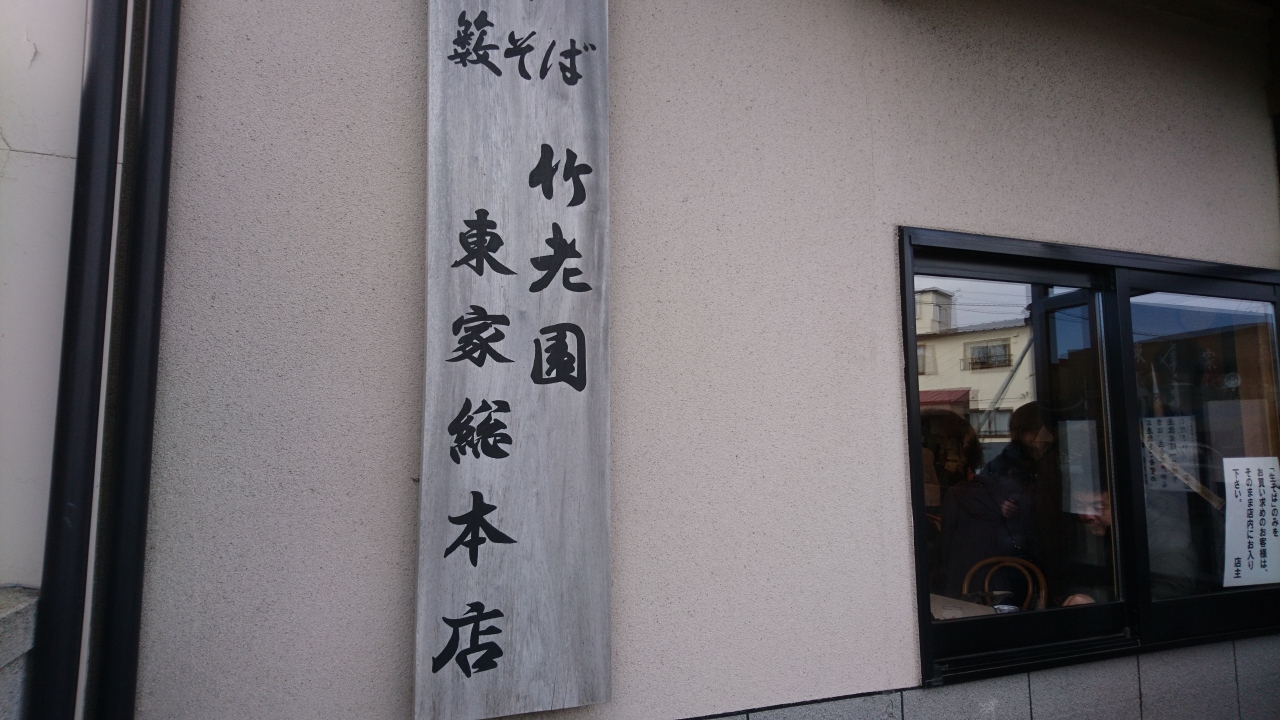 籔そば
竹老園
東家総本店
「生そば」のみを
お買い求めのお客様は、
そのまま店内にお入り
下さい。
店主